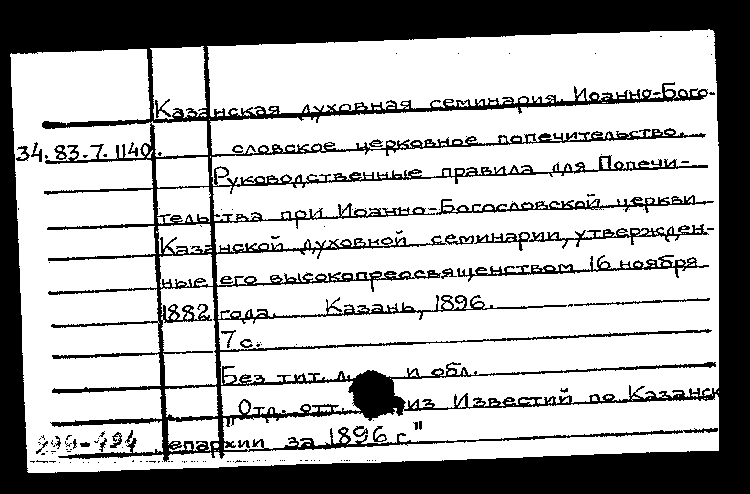 Казанская духовная семинария. Иоанно-Бого-
34.83.7.1140. словское церковное попечительство.
Руководственные правила для Попечи-
тельства при Иоанно-Богословской церкви
Казанской духовной семинарии, утвержден-
ные его высокопреосвященством 16 ноября
1882 года. Казань, 1896.
7 с.
Без тит. л. и обл.
"Отд. отт. из Известий по Казанск
епархии за 1896 г."